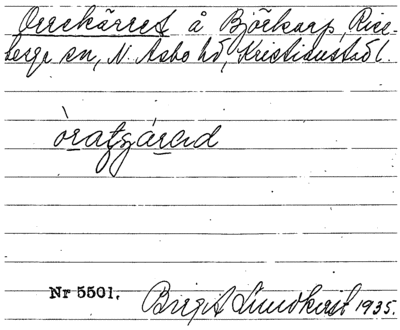 Orrekärret å Björkarp, Rise-
berga sn, N. Åsbo hd, Kristianstads l.
Nr 5501.
Birgit Lundkvist 1935.